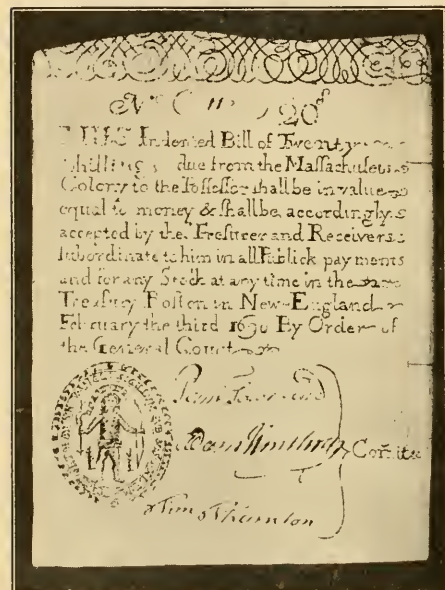 Nº 20ˢ
THIS Indented Bill of Twenty
Shillings due from the Massachusets
Colony to the Possessor shall be in value
equal to money & shall be accordingly
accepted by the Tresurer and Receivers
Subordinate to him in all Publick payments
and for any Stock at any time in the
Treasury Boston in New-England
February the third 1690 By Order of
the General Court
Adam Winthrop
Comitee
Tim Thornton